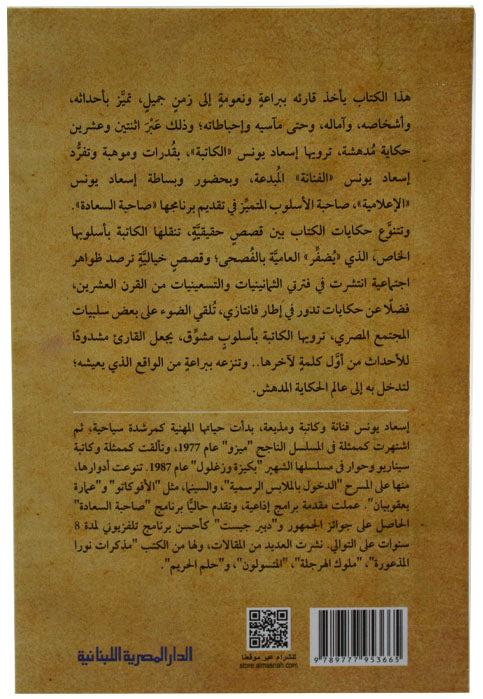 هذا الكتاب يأخذ قارئه ببراعةٍ ونعومةٍ إلى زمنٍ جميلٍ، تميَّز بأحداثه،
وأشخاصه، وآماله، وحتى مآسيه وإحباطاته؛ وذلك عَبْرَ اثنتين وعشرين
حكاية مُدهشة، ترويها إسعاد يونس «الكاتبة»، بقُدرات وموهبة وتفرُّد
إسعاد يونس «الفنانة» المُبدعة، وبحضور وبساطة إسعاد يونس
«الإعلامية»، صاحبة الأسلوب المتميِّز في تقديم برنامجها «صاحبة السعادة».
وتتنوَّع حكايات الكتاب بين قصصٍ حقيقيَّةٍ، تنقلها الكاتبة بأسلوبها
الخاص، الذي «يُضفِّر» العاميَّة بالفُصحى؛ وقصصٍ خياليَّةٍ ترصد ظواهر
اجتماعية انتشرت في فترتي الثمانينيات والتسعينيات من القرن العشرين،
فضلًا عن حكايات تدور في إطار فانتازي، تُلقي الضوء على بعض سلبيات
المجتمع المصري، ترويها الكاتبة بأسلوبٍ مشوِّق، يجعل القارئ مشدودًا
للأحداث من أوَّل كلمةٍ لآخرها.. وتنزعه ببراعةٍ من الواقع الذي يعيشه؛
لتدخل به إلى عالم الحكاية المدهش.
إسعاد يونس فنانة وكاتبة ومذيعة، بدأت حياتها المهنية كمرشدة سياحية، ثم
اشتهرت كممثلة في المسلسل الناجح "ميزو" عام 1977، وتألقت كممثلة وكاتبة
سيناريو وحوار في مسلسلها الشهير "بكيزة وزغلول" عام 1987. تنوعت أدوارها،
منها على المسرح "الدخول بالملابس الرسمية"، والسينما، مثل "الأفوكاتو" و"عمارة
يعقوبيان". عملت مقدمة برامج إذاعية، وتقدم حاليًّا برنامج "صاحبة السعادة"
الحاصل على جوائز الجمهور و"دير جيست" كأحسن برنامج تلفزيوني لمدة 8
سنوات على التوالي. نشرت العديد من المقالات، ولها من الكتب "مذكرات نورا
المذعورة"، "ملوك الهرجلة"، "المتسولون"، و"حلم الحريم".
الدار المصرية اللبنانية
للشراء عبر موقعنا
store.almasriah.com
9 789777 953665